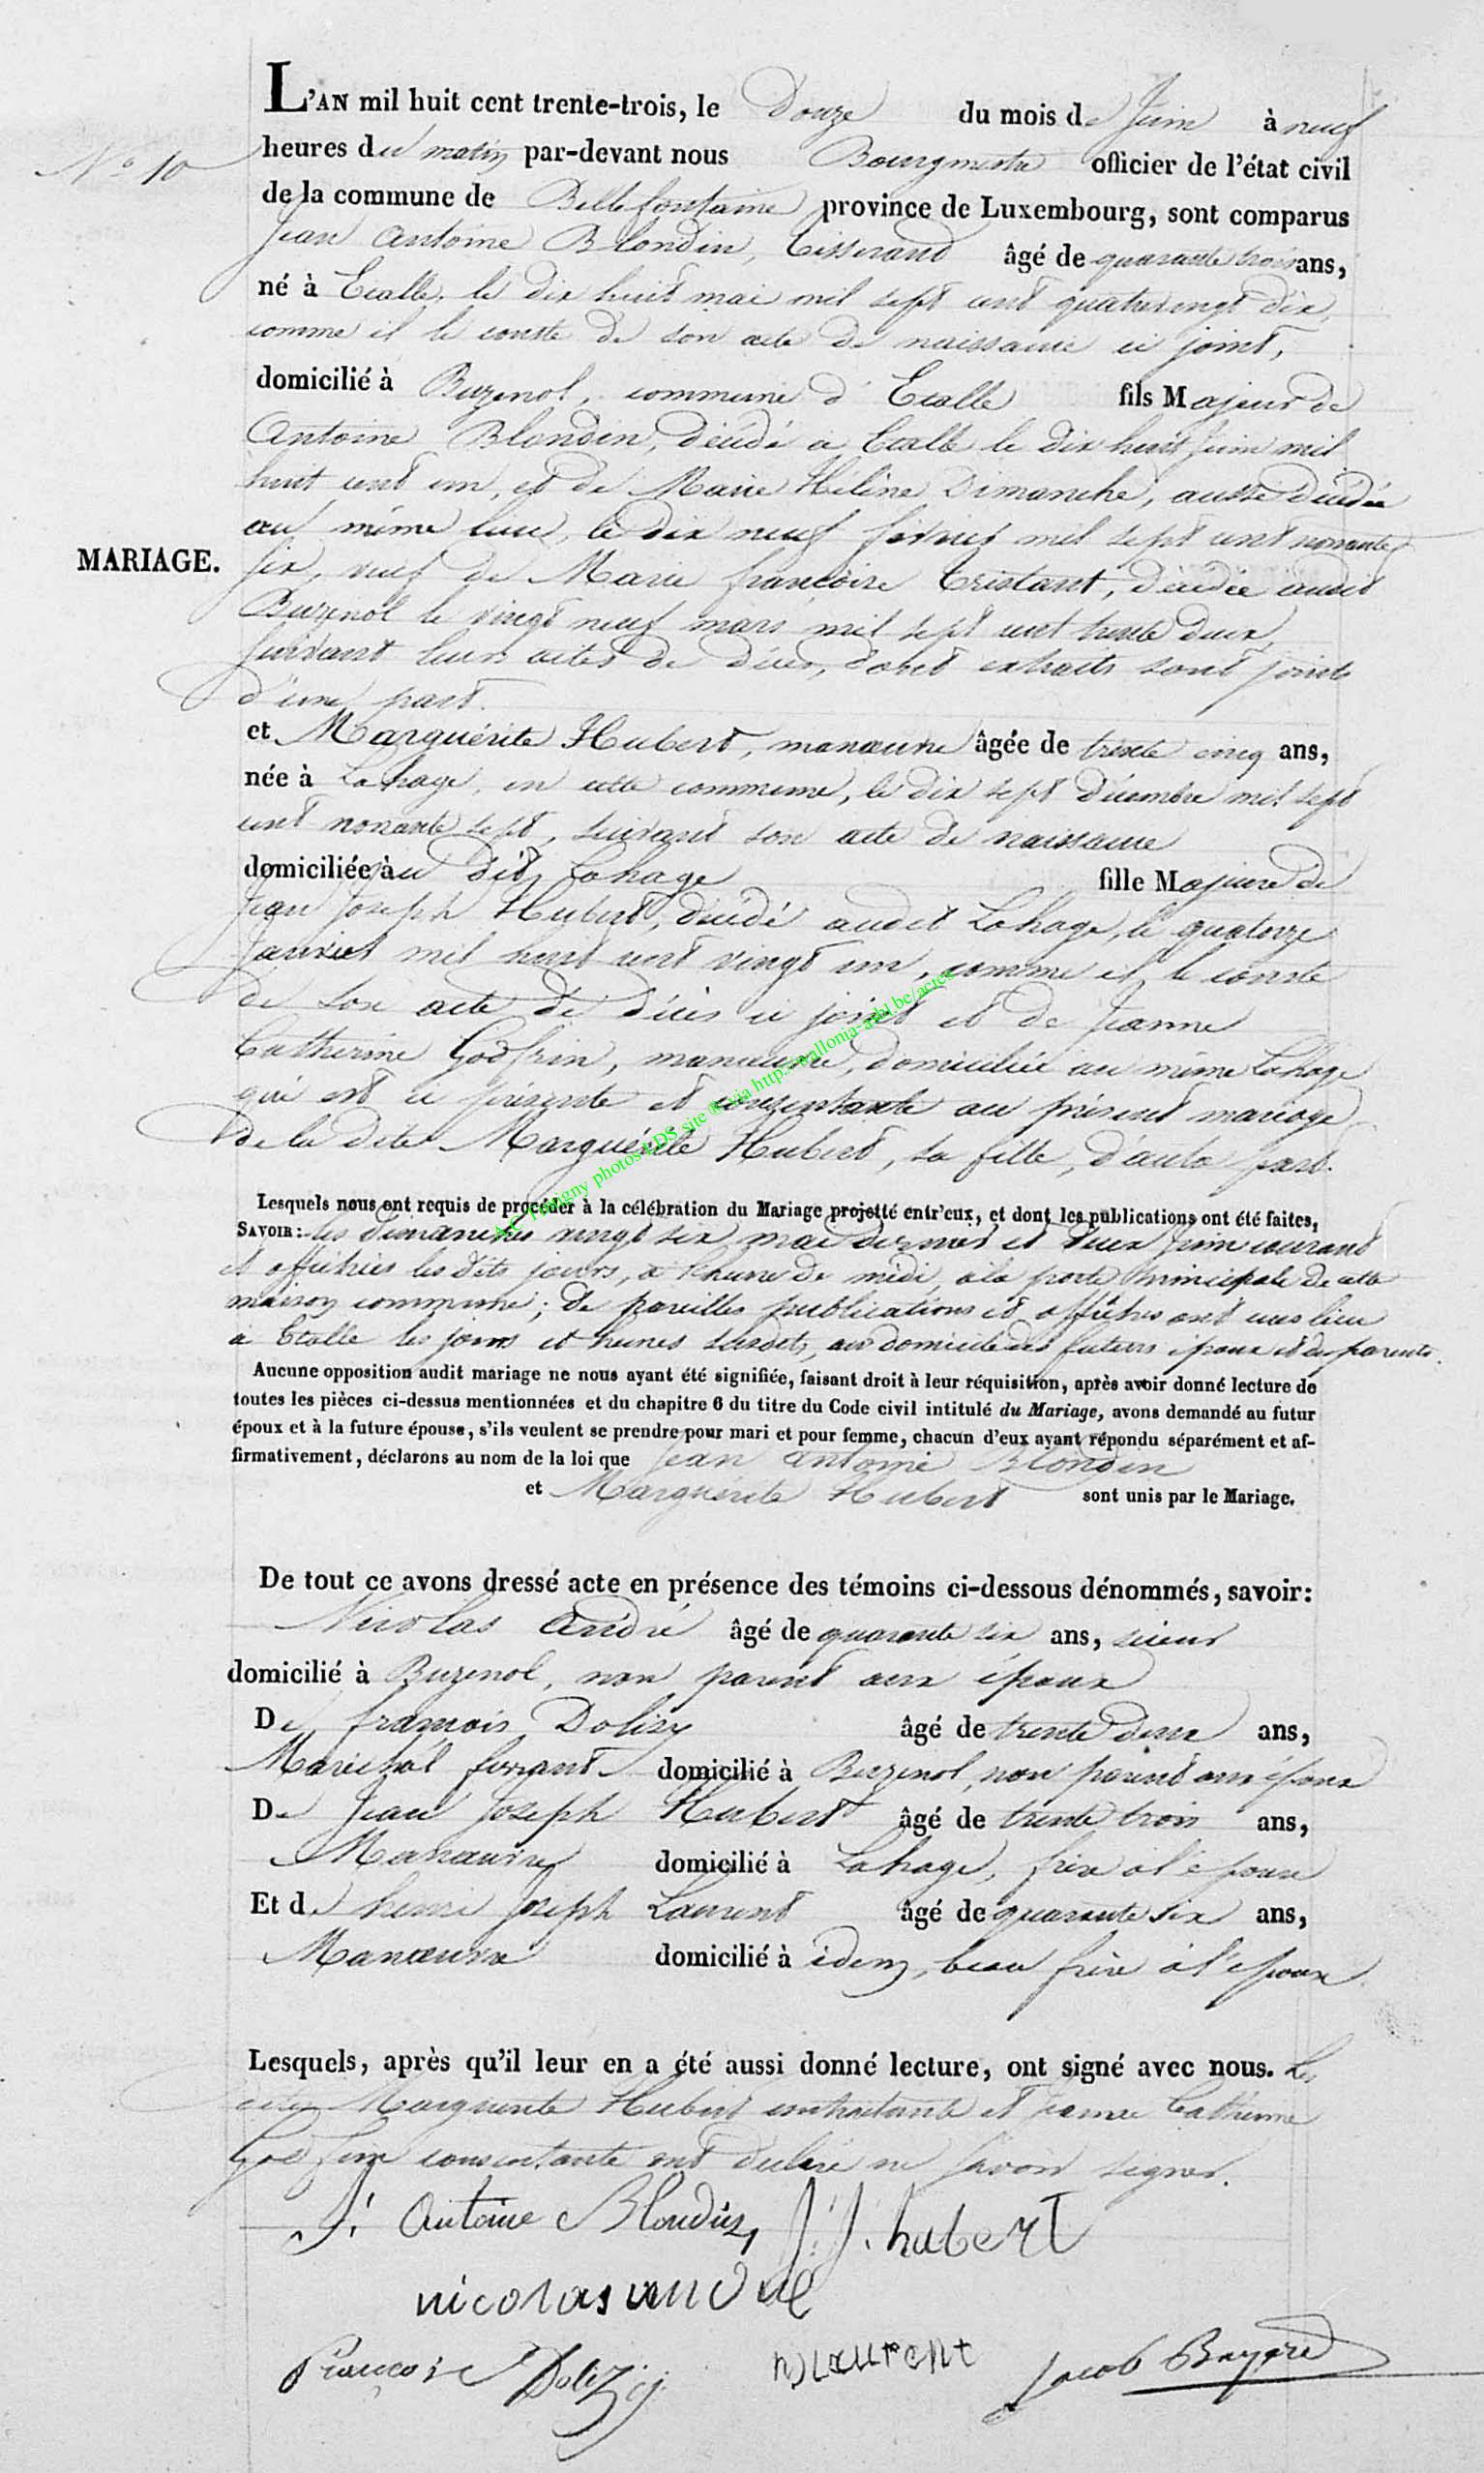 L'AN mil huit cent trente-trois, le Douze du mois de Juin à neuf
N° 10
heures du matin par-devant nous Bourgmestre officier de l'état civil
de la commune de Bellefontaine province de Luxembourg, sont comparus
Jean Antoine Blondin, Tisserand âgé de quarante trois ans,
né à Etalle, le dix huit mai mil sept cent quatrevingt dix,
comme il le conste de son acte de naissance ci joint,
domicilié à Buzenol, commune d'Etalle fils Majeur de
Antoine Blondin, décédé à Etalle le dix huit juin mil
huit cent un, et de Marie Hélène Dimanche, aussi décédée
au même lieu, le dix neuf février mil sept cent nonante
six, veuf de Marie françoise Tristant, décédée audit
Buzenol le vingt neuf mars mil sept cent trente deux,
suivant leurs actes de décès, dont extraits sont joints
d'une part.
MARIAGE.
et Marguérite Hubert, manœuvre âgée de trente cinq ans,
née à Lahage, en cette commune, le dix sept décembre mil sept
cent nonante sept, suivant son acte de naissance
domiciliée au dit Lahage fille Majeure de
Jean Joseph Hubert, décédé audit Lahage, le quatorze
Janvier mil huit cent vingt un, comme il le conste
de son acte de décès ci joint et de Jeanne
Catherine Godfrin, manœuvre, domiciliée au même Lahage
qui est ci présente et consentante au présent mariage
de la dite Marguérite Hubert, sa fille, d'autre part.
A.C. Tintigny photos LDS site © via http://wallonia-asbl.be/actes
Lesquels nous ont requis de procéder à la célébration du Mariage projetté entr'eux, et dont les publications ont été faites,
SAVOIR: les dimanches vingt six mai dernier et deux Juin courant
et affichées les dits jours, à l'heure de midi, à la porte principale de cette
maison commune; de pareilles publications et affiches ont eus lieu
à Etalle les jours et heures susdits, au domicile des futurs époux et des parents.
Aucune opposition audit mariage ne nous ayant été signifiée, faisant droit à leur réquisition, après avoir donné lecture de
toutes les pièces ci-dessus mentionnées et du chapitre 6 du titre du Code civil intitulé du Mariage, avons demandé au futur
époux et à la future épouse, s'ils veulent se prendre pour mari et pour femme, chacun d'eux ayant répondu séparément et af-
firmativement, déclarons au nom de la loi que Jean Antoine Blondin
et Marguérite Hubert sont unis par le Mariage.
De tout ce avons dressé acte en présence des témoins ci-dessous dénommés, savoir:
Nicolas André âgé de quarante six ans, scieur
domicilié à Buzenol, non parent aux époux
De françois Dolizy âgé de trente deux ans,
Maréchal ferrant domicilié à Buzenol, non parent aux époux
De Jean Joseph Hubert âgé de trente trois ans,
Manœuvre domicilié à Lahage, frère à l'épouse
Et de henri Joseph Laurent âgé de quarante six ans,
Manœuvre domicilié à idem, beau frère à l'épouse
Lesquels, après qu'il leur en a été aussi donné lecture, ont signé avec nous. Les
dites Marguerite Hubert contractante et Jeanne Catherine
Godfrin consentante ont déclaré ne savoir signer.
J. Antoine Blondin, J. J. hubert
nicolas andre
François Dolizij
hJ Laurent
Jacob